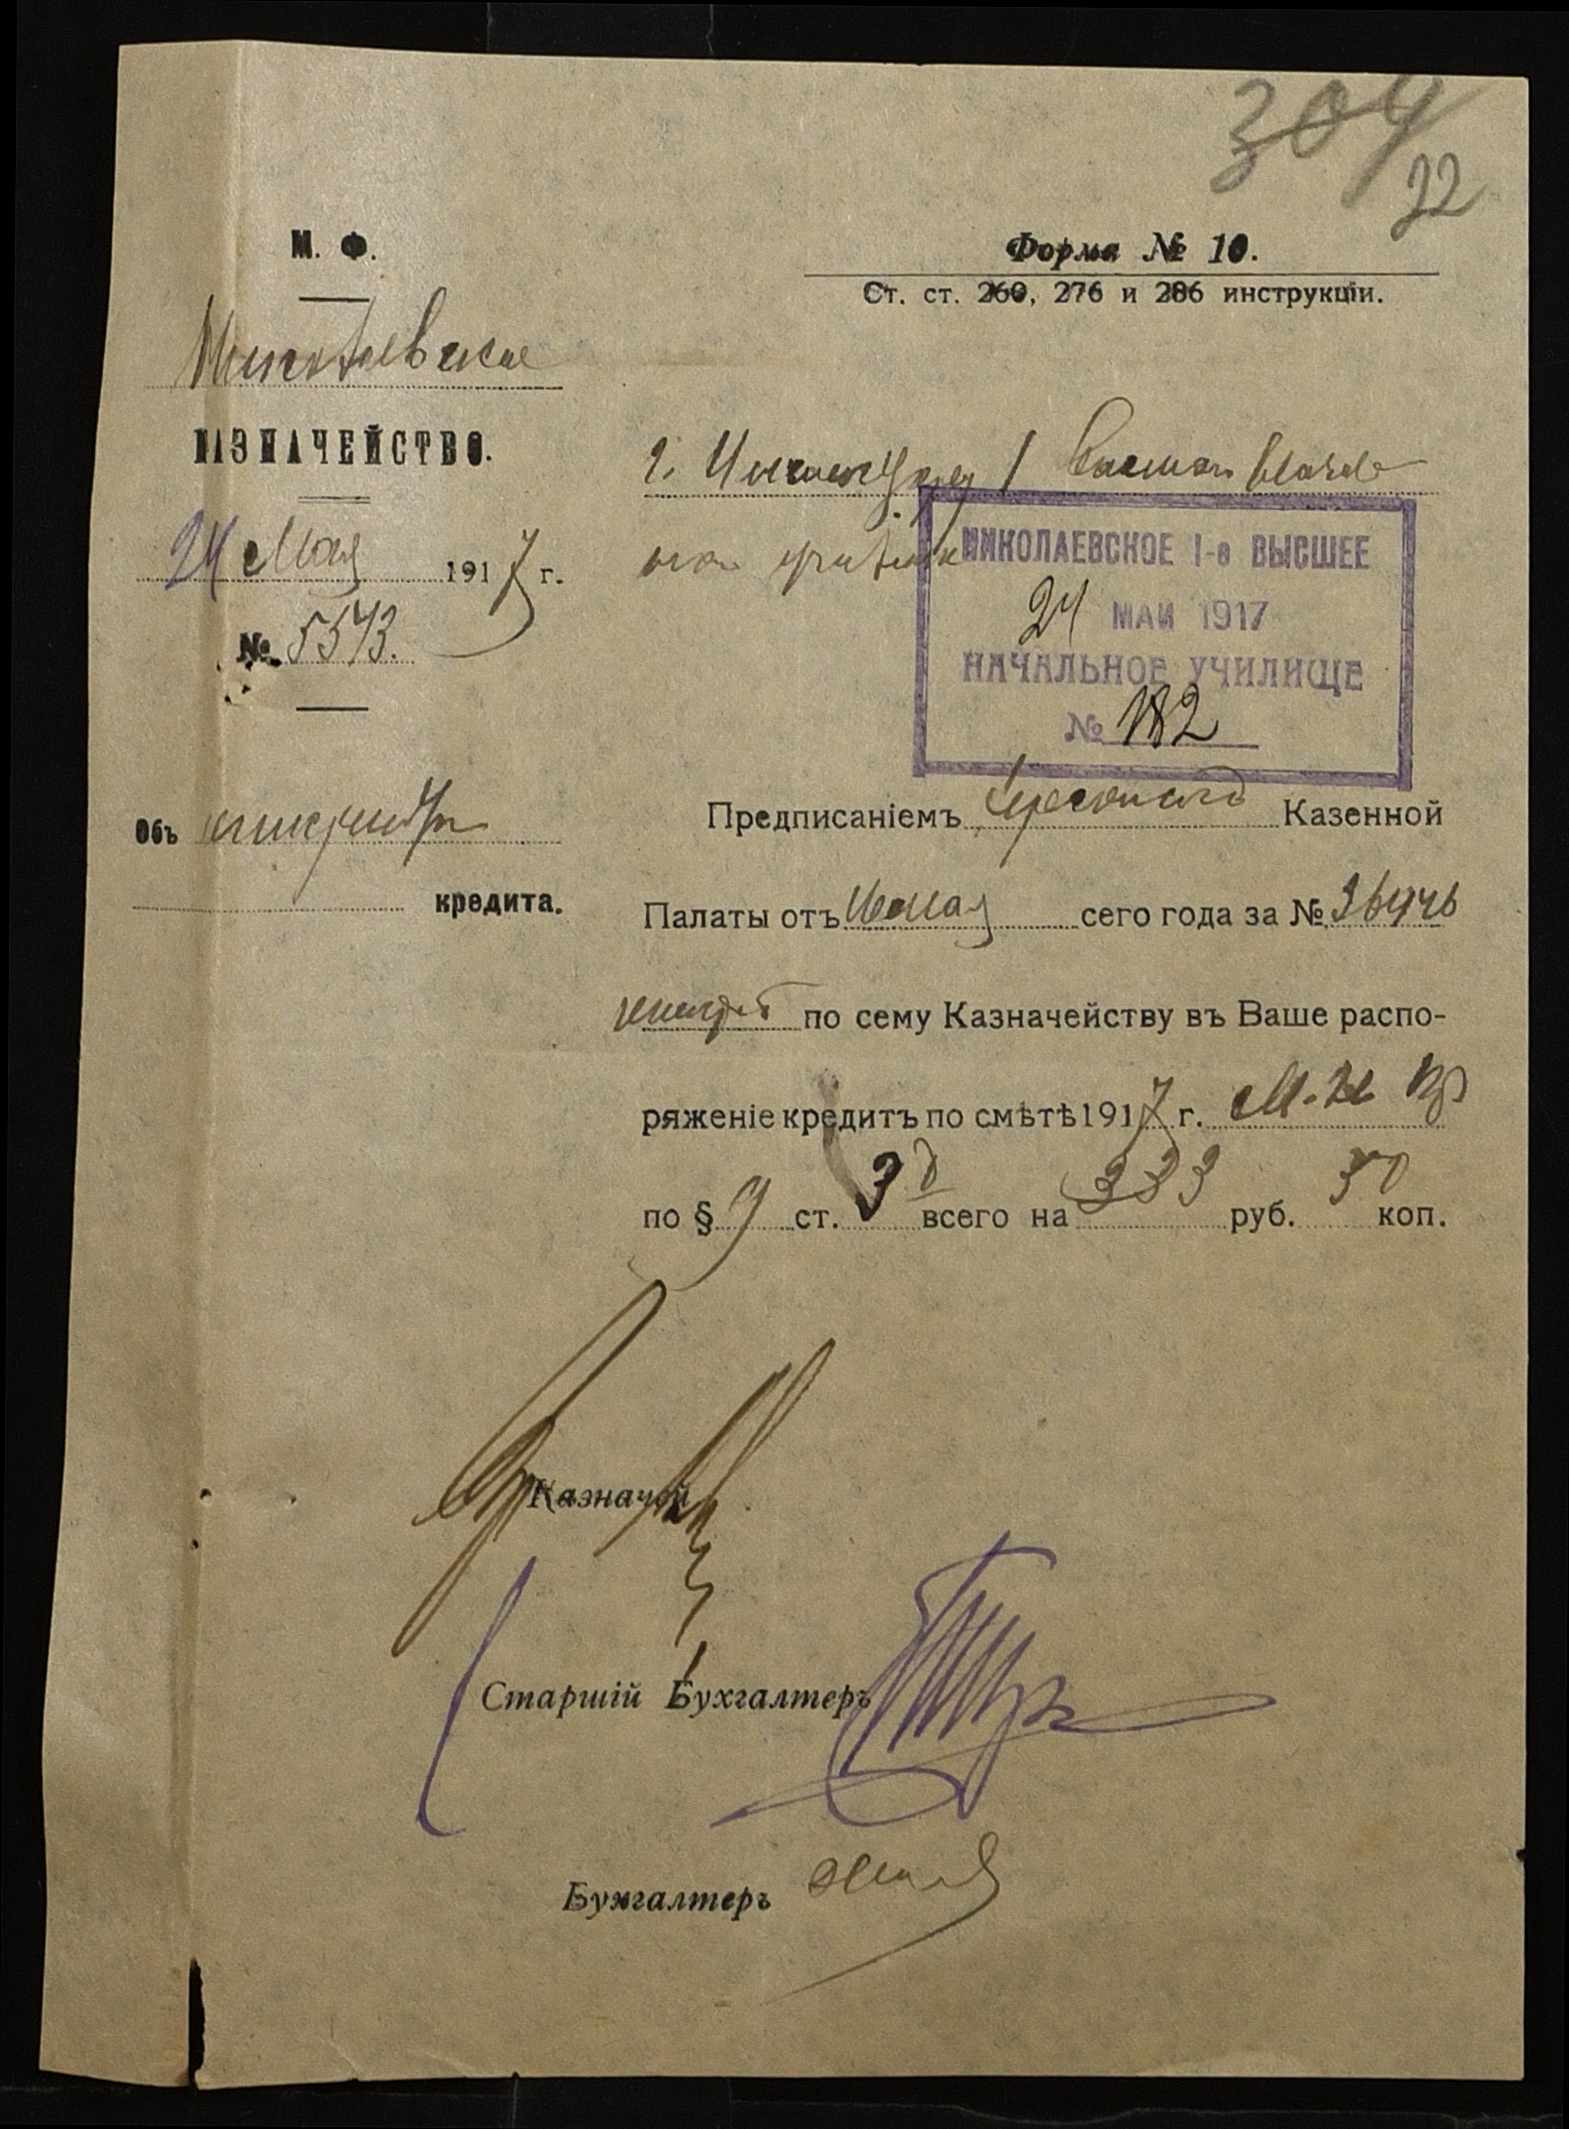 304
22
М. Ф.
Форма № 10.
Ст. ст. 260, 276 и 286 инструкціи.
Николаевское
КАЗНАЧЕЙСТВО.
г. Инспектору 1 Высшаго Началь
наго училища
24 Мая 1917 г.
№ 5573.
НИКОЛАЕВСКОЕ 1-е ВЫСШЕЕ
24 МАЙ 1917
НАЧАЛЬНОЕ УЧИЛИЩЕ
№ 182
Объ
кредита.
Предписаніемъ Херсонской Казенной
Палаты отъ Мая сего года за №
по сему Казначейству въ Ваше распо-
ряженіе кредитъ по смѣтѣ 1917 г. М. Н. Пр
по § 9 ст. 3 всего на 333 руб. 50 коп.
Казначей
Старшій Бухгалтеръ
Бухгалтеръ